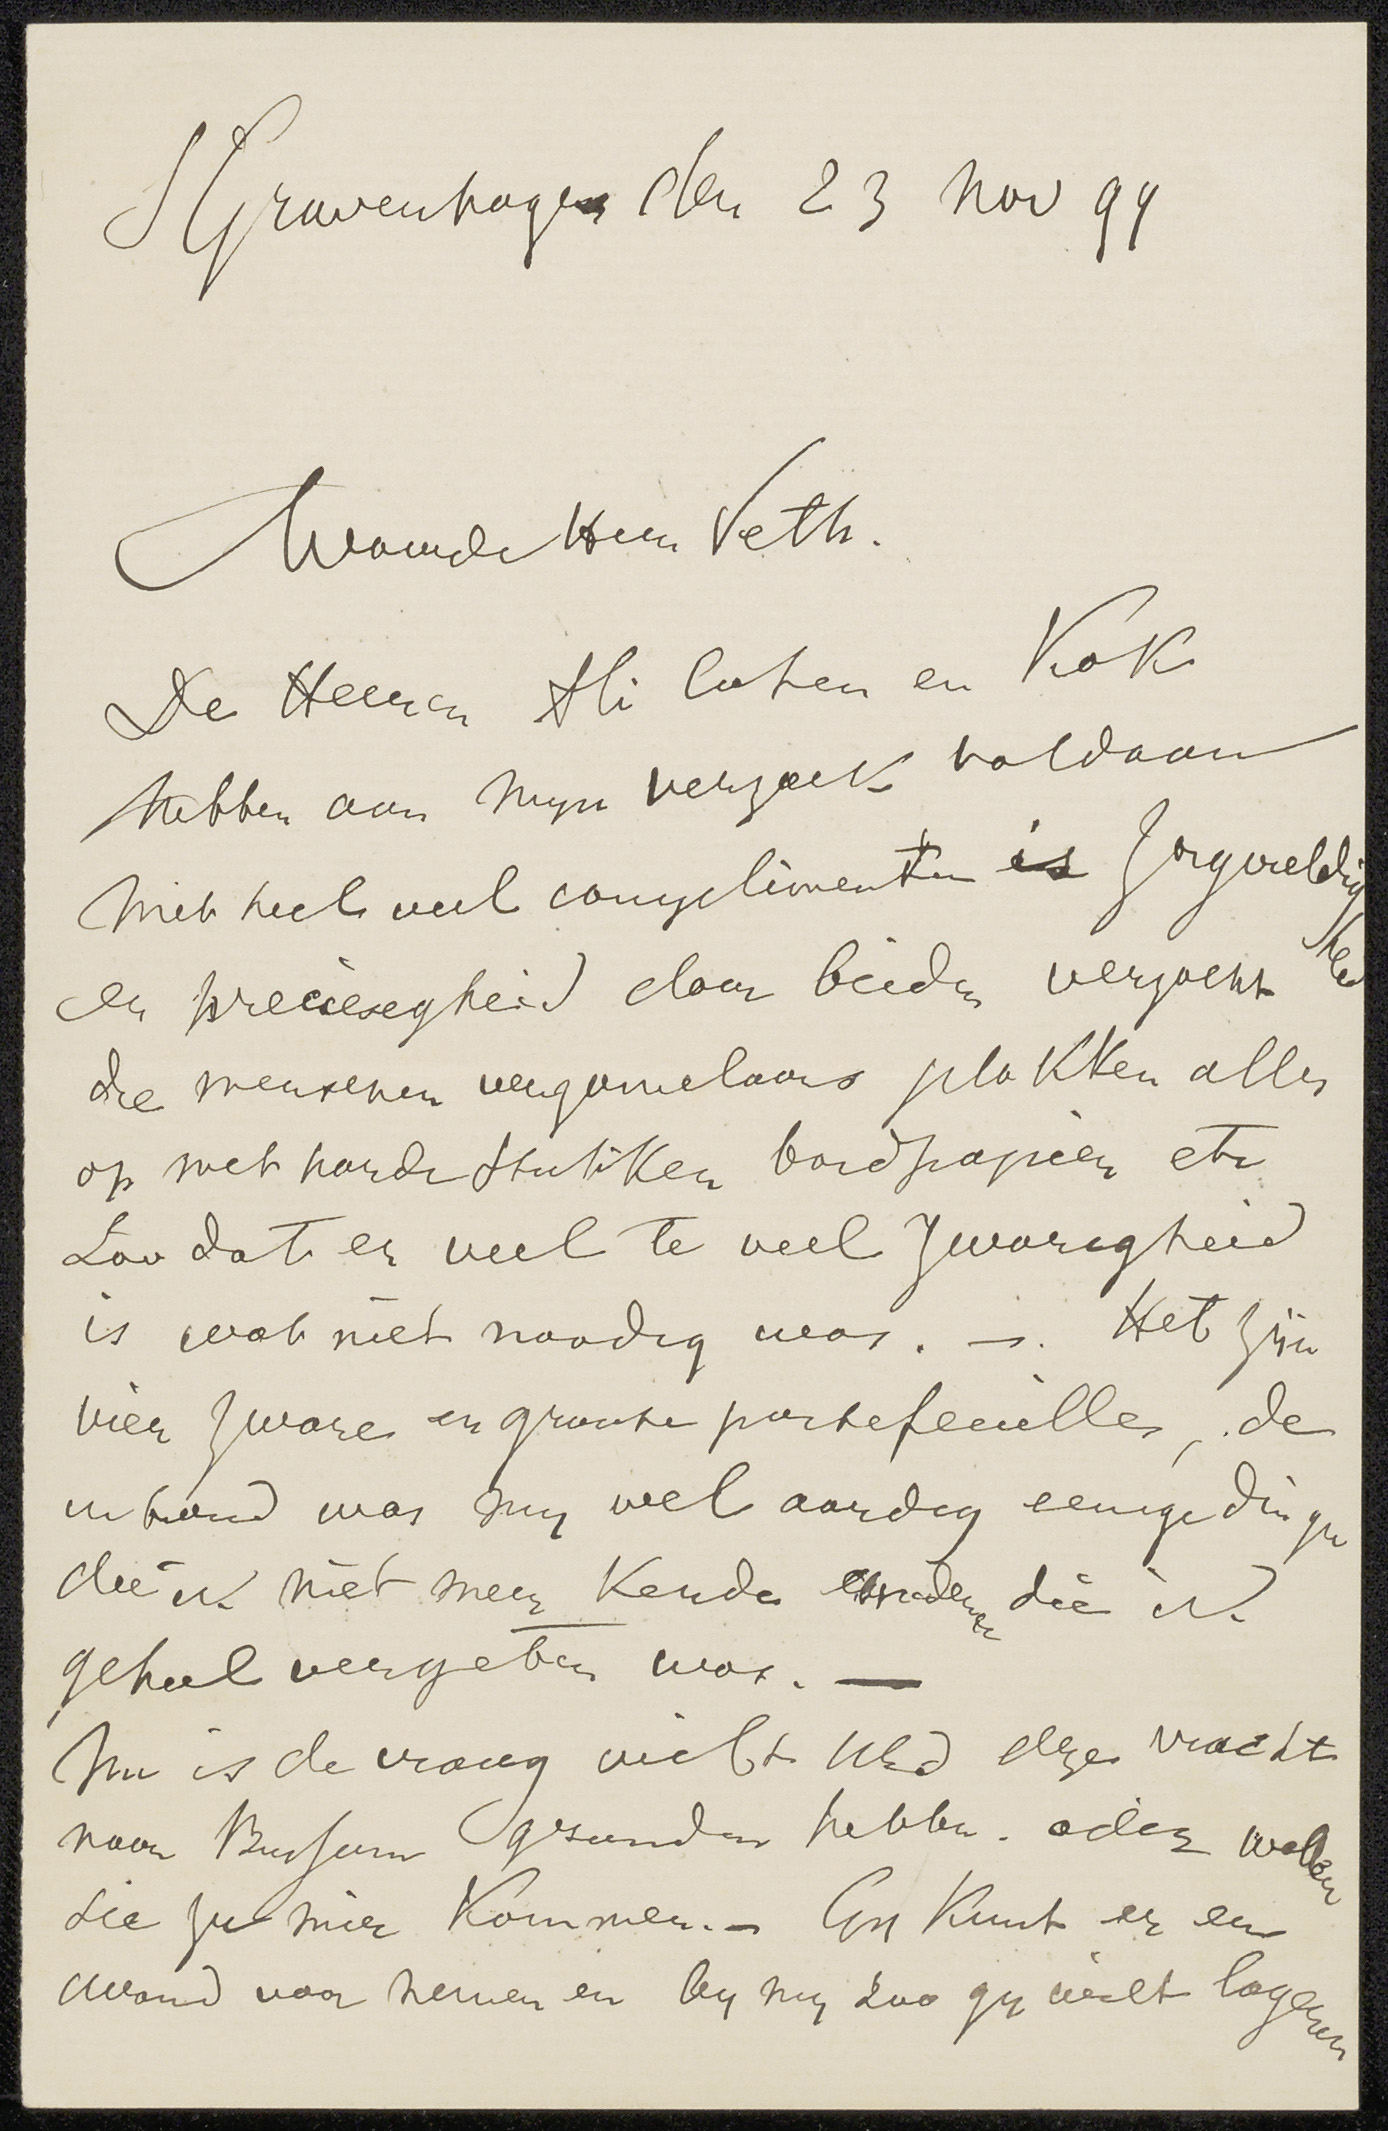 S Gravenhagen den 23 nov 94
Waarde Heer Veth.
De Heeren Ali Cohen en Kok
hebben aan myn verzoek voldaan
met heel veel complimenten is zorgvuldig
heid
en preciesegheid door beiden verzocht
die menschen verzamelaars plakken alles
op met harde stukken bordpapier etc
Zoo dat er veel te veel zwarigheid
is wat niet noodig was. —. Het zijn
vier zware en groote portefeuilles, de
inhoud was my wel aardig eenige dingen
die ik niet meer kende die ik
geheel vergeten was. —
Nu is de vraag wilt UEd deze vracht
naar Bussum gezonden hebben. oder wollen
sie zu mir kommen. — Gy kunt er een
avond voor nemen en by my zoo gy wilt logeren